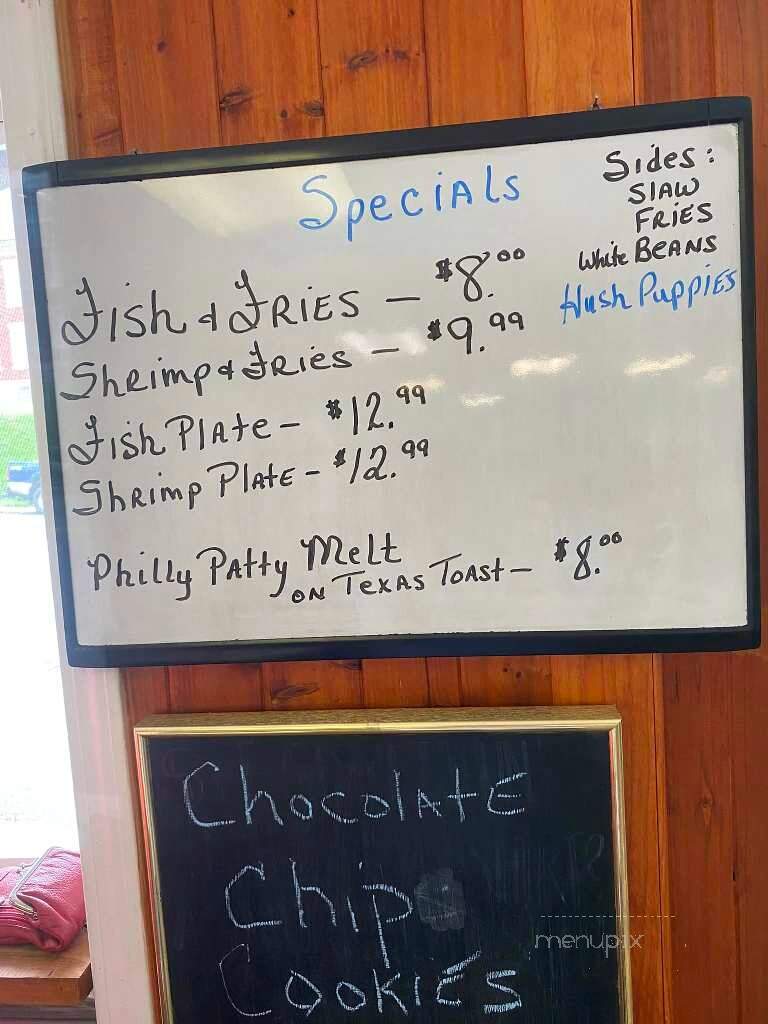 Specials
Fish & Fries - $8.00
Shrimp & Fries - $9.99
Fish Plate - $12.99
Shrimp Plate - $12.99
Philly Patty Melt
on Texas Toast - $8.00
Sides:
Slaw
Fries
White Beans
Hush Puppies
Chocolate
Chip
Cookies
menupix